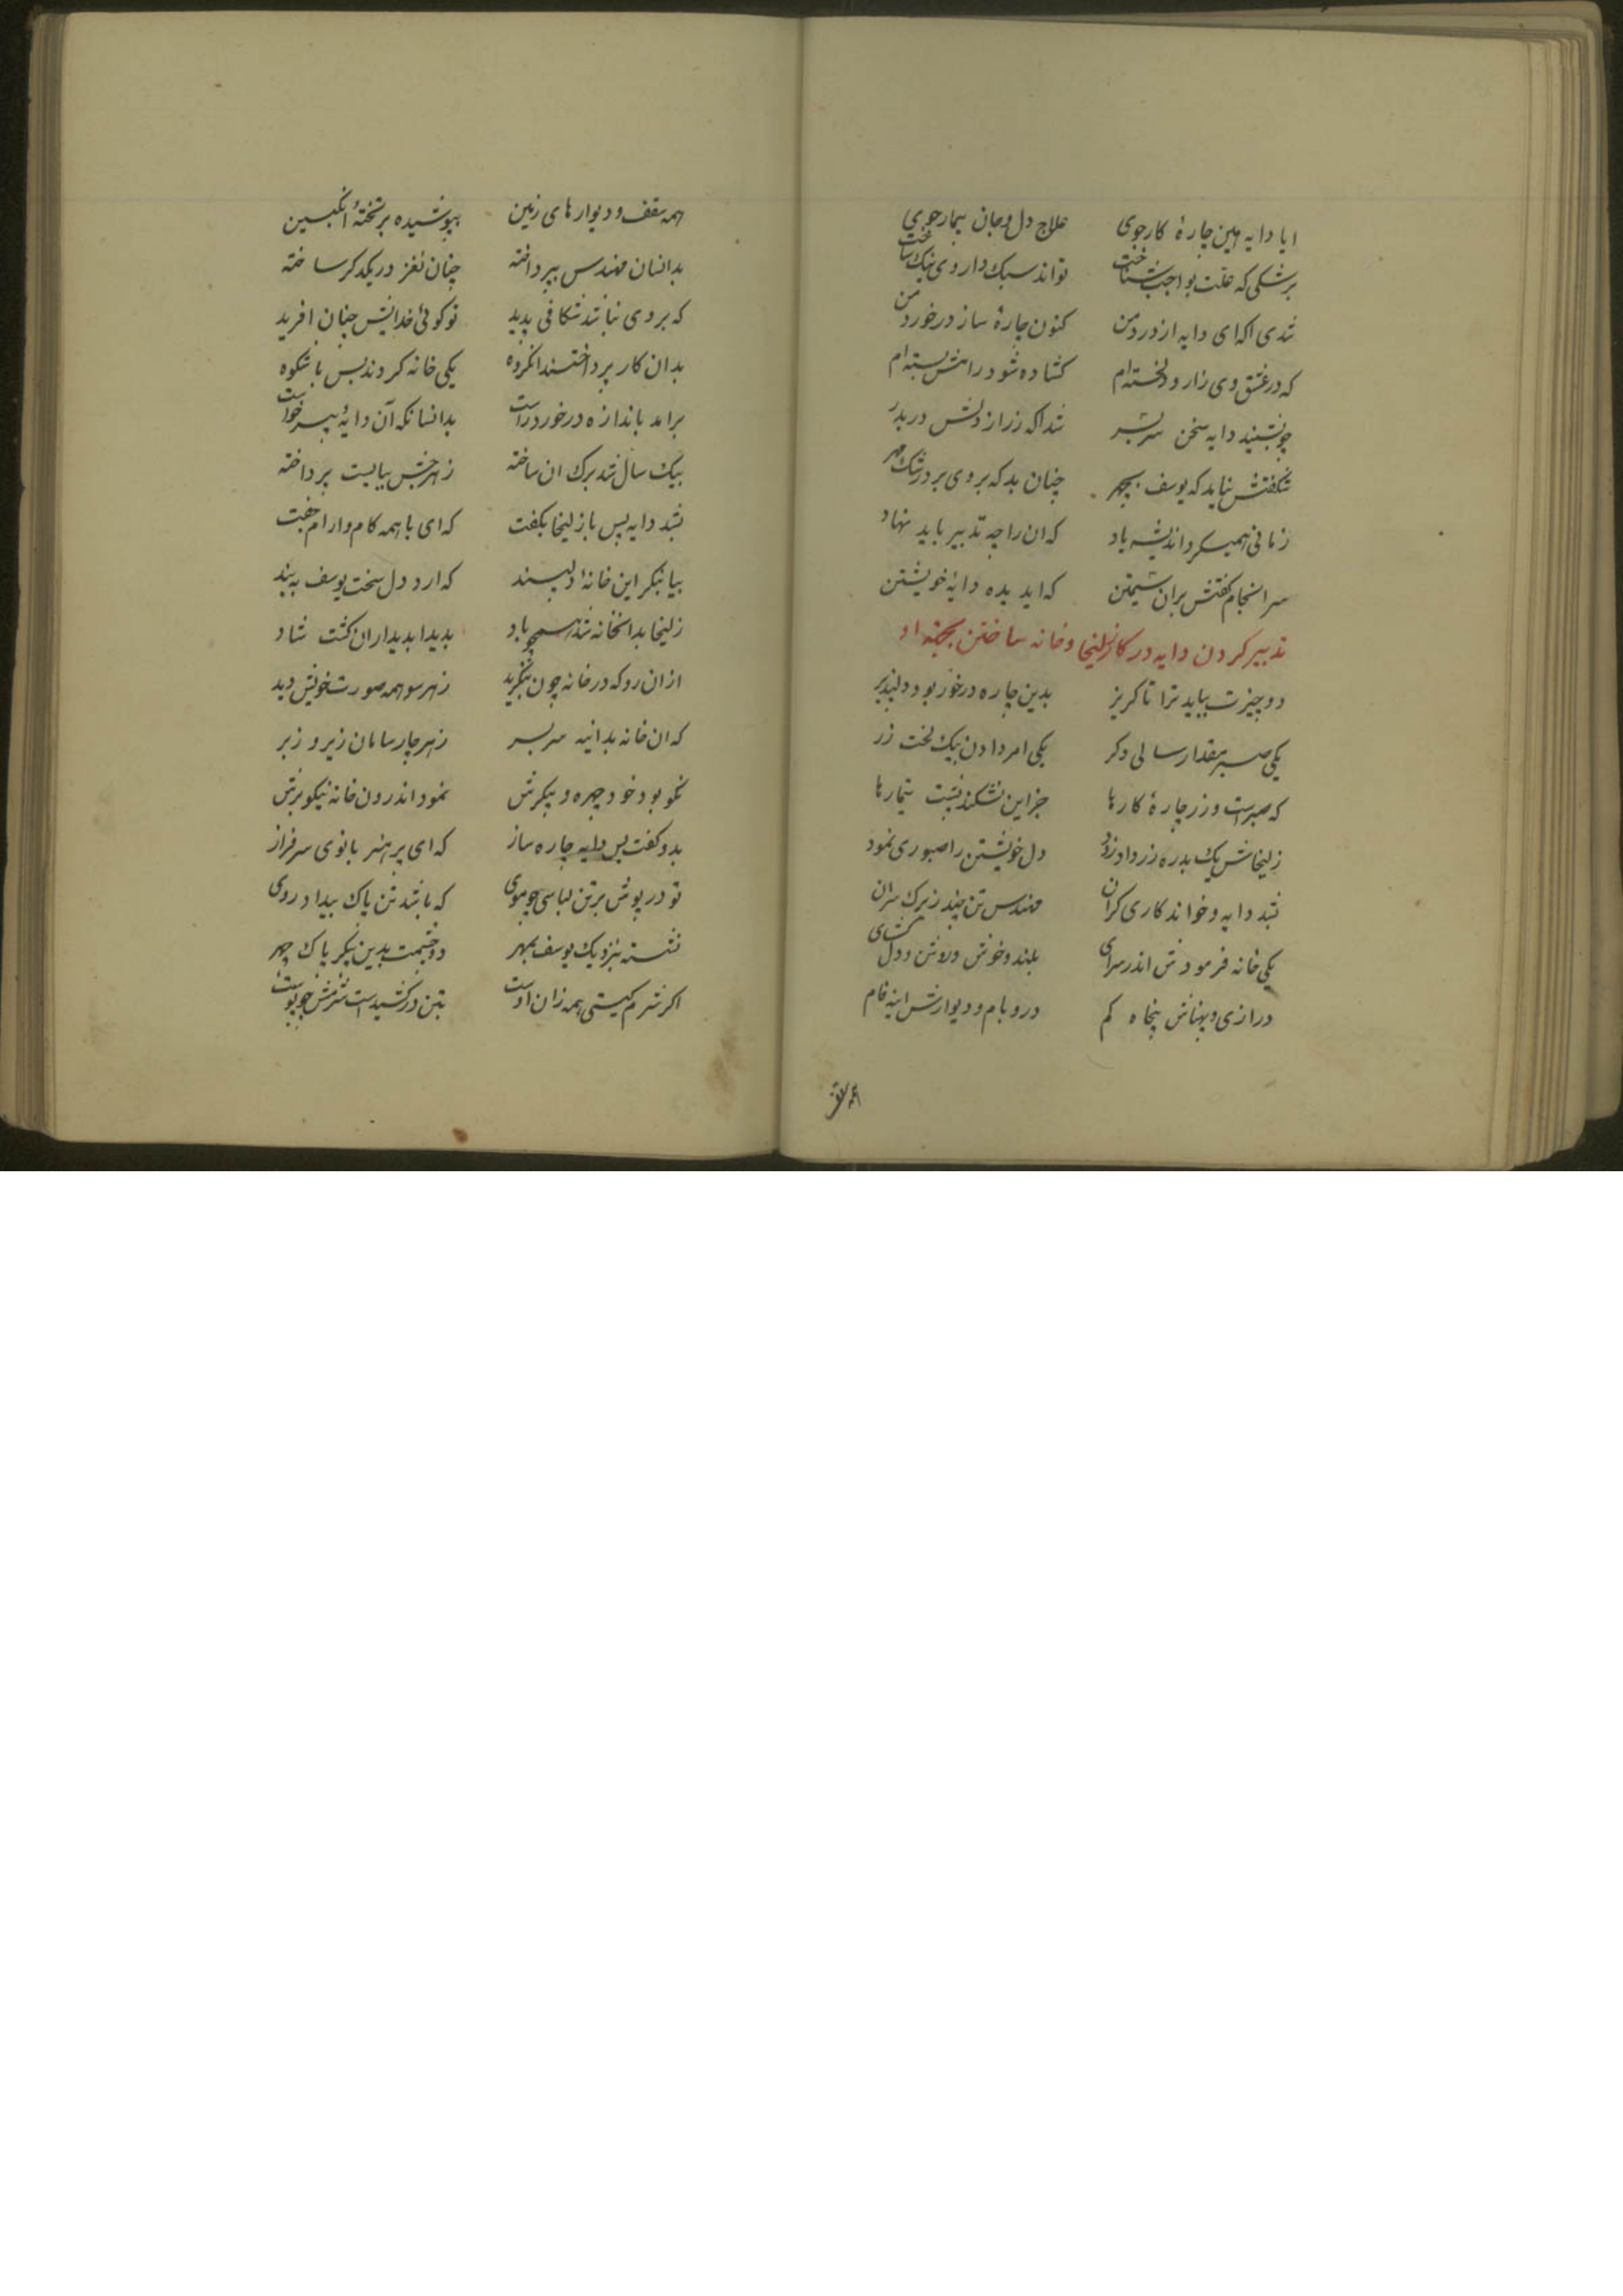 ایا دایه هین چارهٔ کارجوی علاج دل وجان بیمارجوی
پزشکی که علت بواجب شناخت تواند سبک داروی نیک ساخت
شدی اکه ای دایه از درد من کنون چارهٔ ساز درخورد من
که در عشق وی زار و دلخسته‌ام کشاده شود رامش بسته‌ام
چو بشنید دایه سخن سربسر شد اکه ز راز دلش دربدر
شکفتش نیاید که یوسف بچهر چنان بد که بروی برد رشک مهر
زمانی همیکرد اندیشه یاد که ان را چه تدبیر باید نهاد
سرانجام کفتش بران سیمتن که اید یده دایهٔ خویشتن
تدبیر کردن دایه در کار زلیخا وخانه ساختن بجهة او
دو چیزت بباید ترا ناکزیز بدین چاره درخور بود دلپذیر
یکی صبر بمقدار سالی دکر یکی امر دادن بیک لخت زر
که صبرست و زر چارهٔ کارها جز این نشکند پشت تیمارها
زلیخاش یک بدره زر داد زود دل خویشتن را صبوری نمود
بشد دایه وخواند کاری کران مهندس تن چند زیرک سران
یکی خانه فرمودش اندر سرای بلند وخوش وروشن ودل کشای
درازی وپهناش پنجاه کم در و بام ودیوارش اینه فام
همه سقف
همه سقف ودیوارهای زمین بپوشیده بر تختهٔ انکبسین
بدانسان مهندس بپرداخته چنان نغز در یکدکر ساخته
که بر وی نباشد شکافی پدید توکوئی خدایش چنان افرید
بدان کار پرداختند انکروه یکی خانه کردند بس باشکوه
برامد باندازه درخورد راست بدانسانکه آن دایهٔ پیر خواست
بیک سال شد برک ان ساخته زهر چش ببایست پرداخته
بشد دایه پس با زلیخا بکفت که ای با همه کام وارام جفت
بیا بنکر این خانهٔ دلپسند که ارد دل سخت یوسف به بند
زلیخا بدانخانه شد همچو باد بدید ابدیداران کشت شاد
ازان رو که در خانه چون بنکرید زهر سو همه صورت خویش دید
که ان خانه بد اینه سربسر زهر چار سامان زیر و زبر
نکو بود خود چهره و پیکرش نمود اندرون خانه نیکو برش
بدو کفت پس دایه چاره ساز که ای پر هنر بانوی سرفراز
تو در پوش بر تن لباسی چو موی که باشد تن پاک پیدا و روی
نشسته بنزدیک یوسف بمهر دو چشمت بدین پیکر پاک چهر
اکر شرم کیتی همه زان اوست بتن در کشیدست شرمش چو پوست